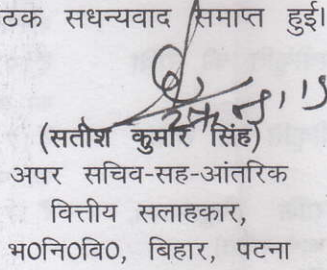 ठक सधन्यवाद समाप्त हुई।
(सतीश कुमार सिंह)
अपर सचिव-सह-आंतरिक
वित्तीय सलाहकार,
भ०नि०वि०, बिहार, पटना